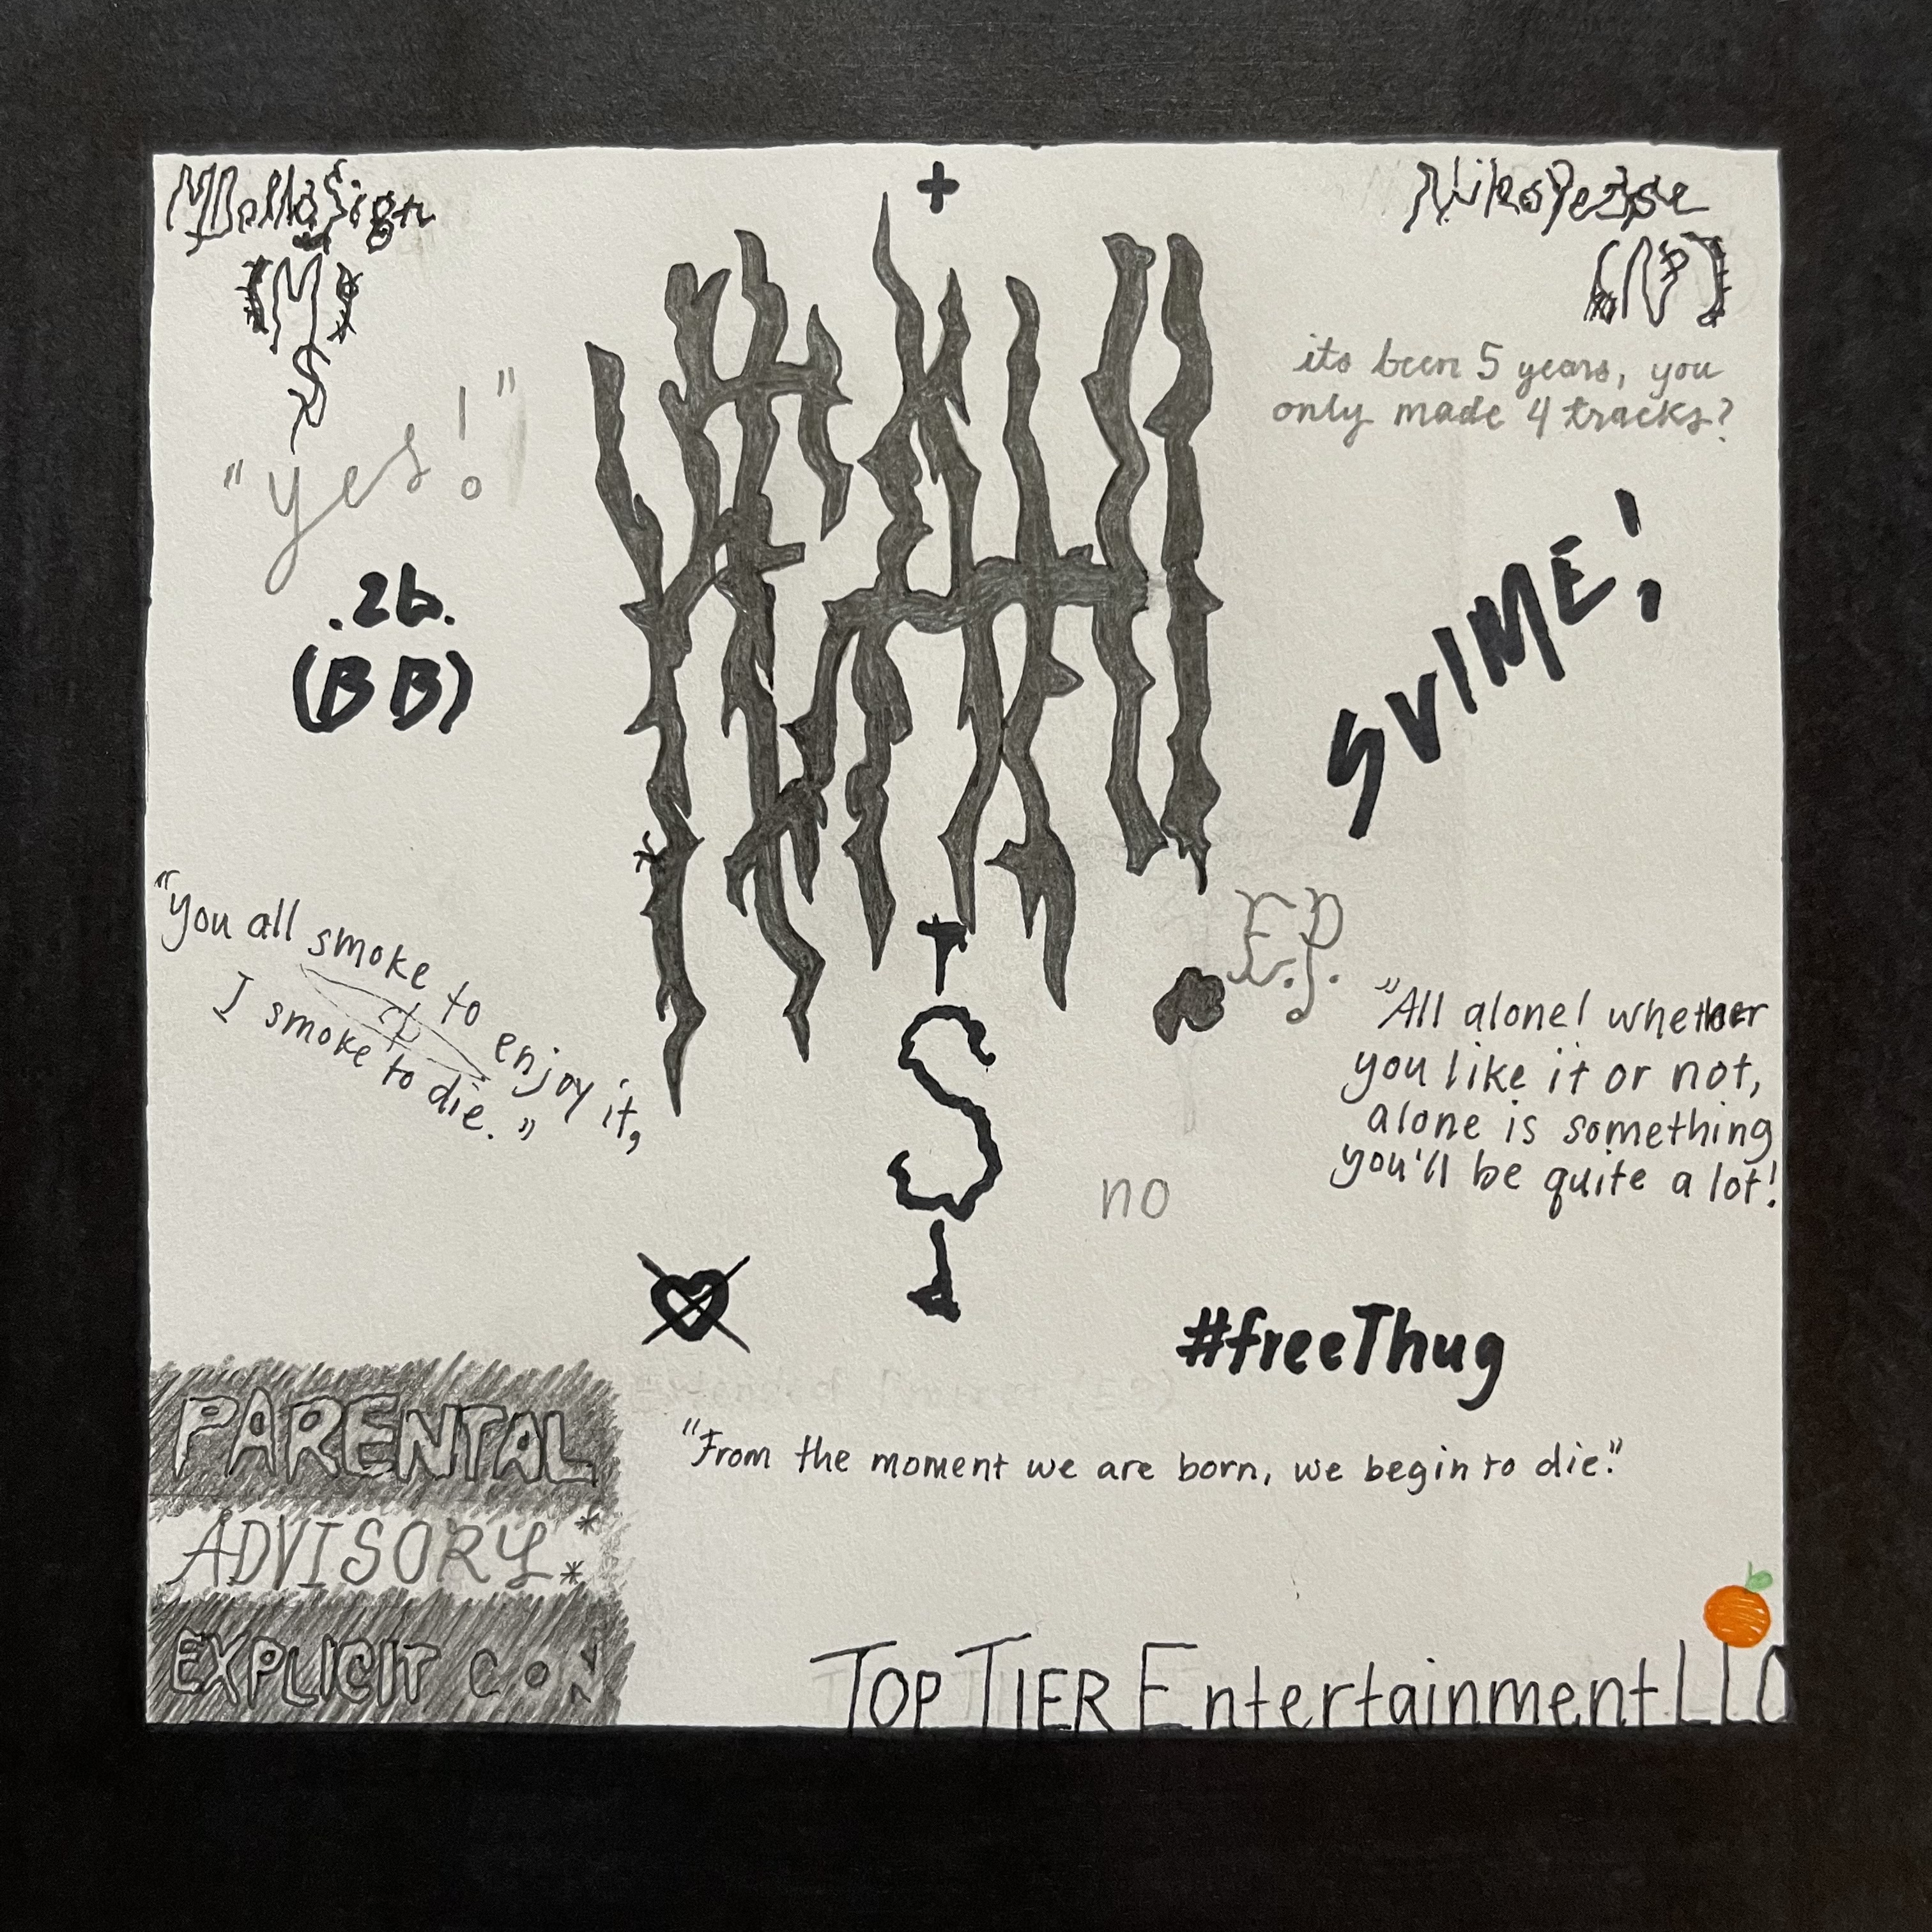 MDollaSign
(M)
S
"yes!"
.26.
(BB)
its been 5 years, you
only made 4 tracks?
SVIME!
E.P.
"you all smoke to enjoy it,
I smoke to die."
"All alone! whether
you like it or not,
alone is something
you'll be quite a lot!
S
no
#freeThug
"From the moment we are born, we begin to die."
PARENTAL
ADVISORY**
EXPLICIT CON
TOP TIER Entertainment LLC